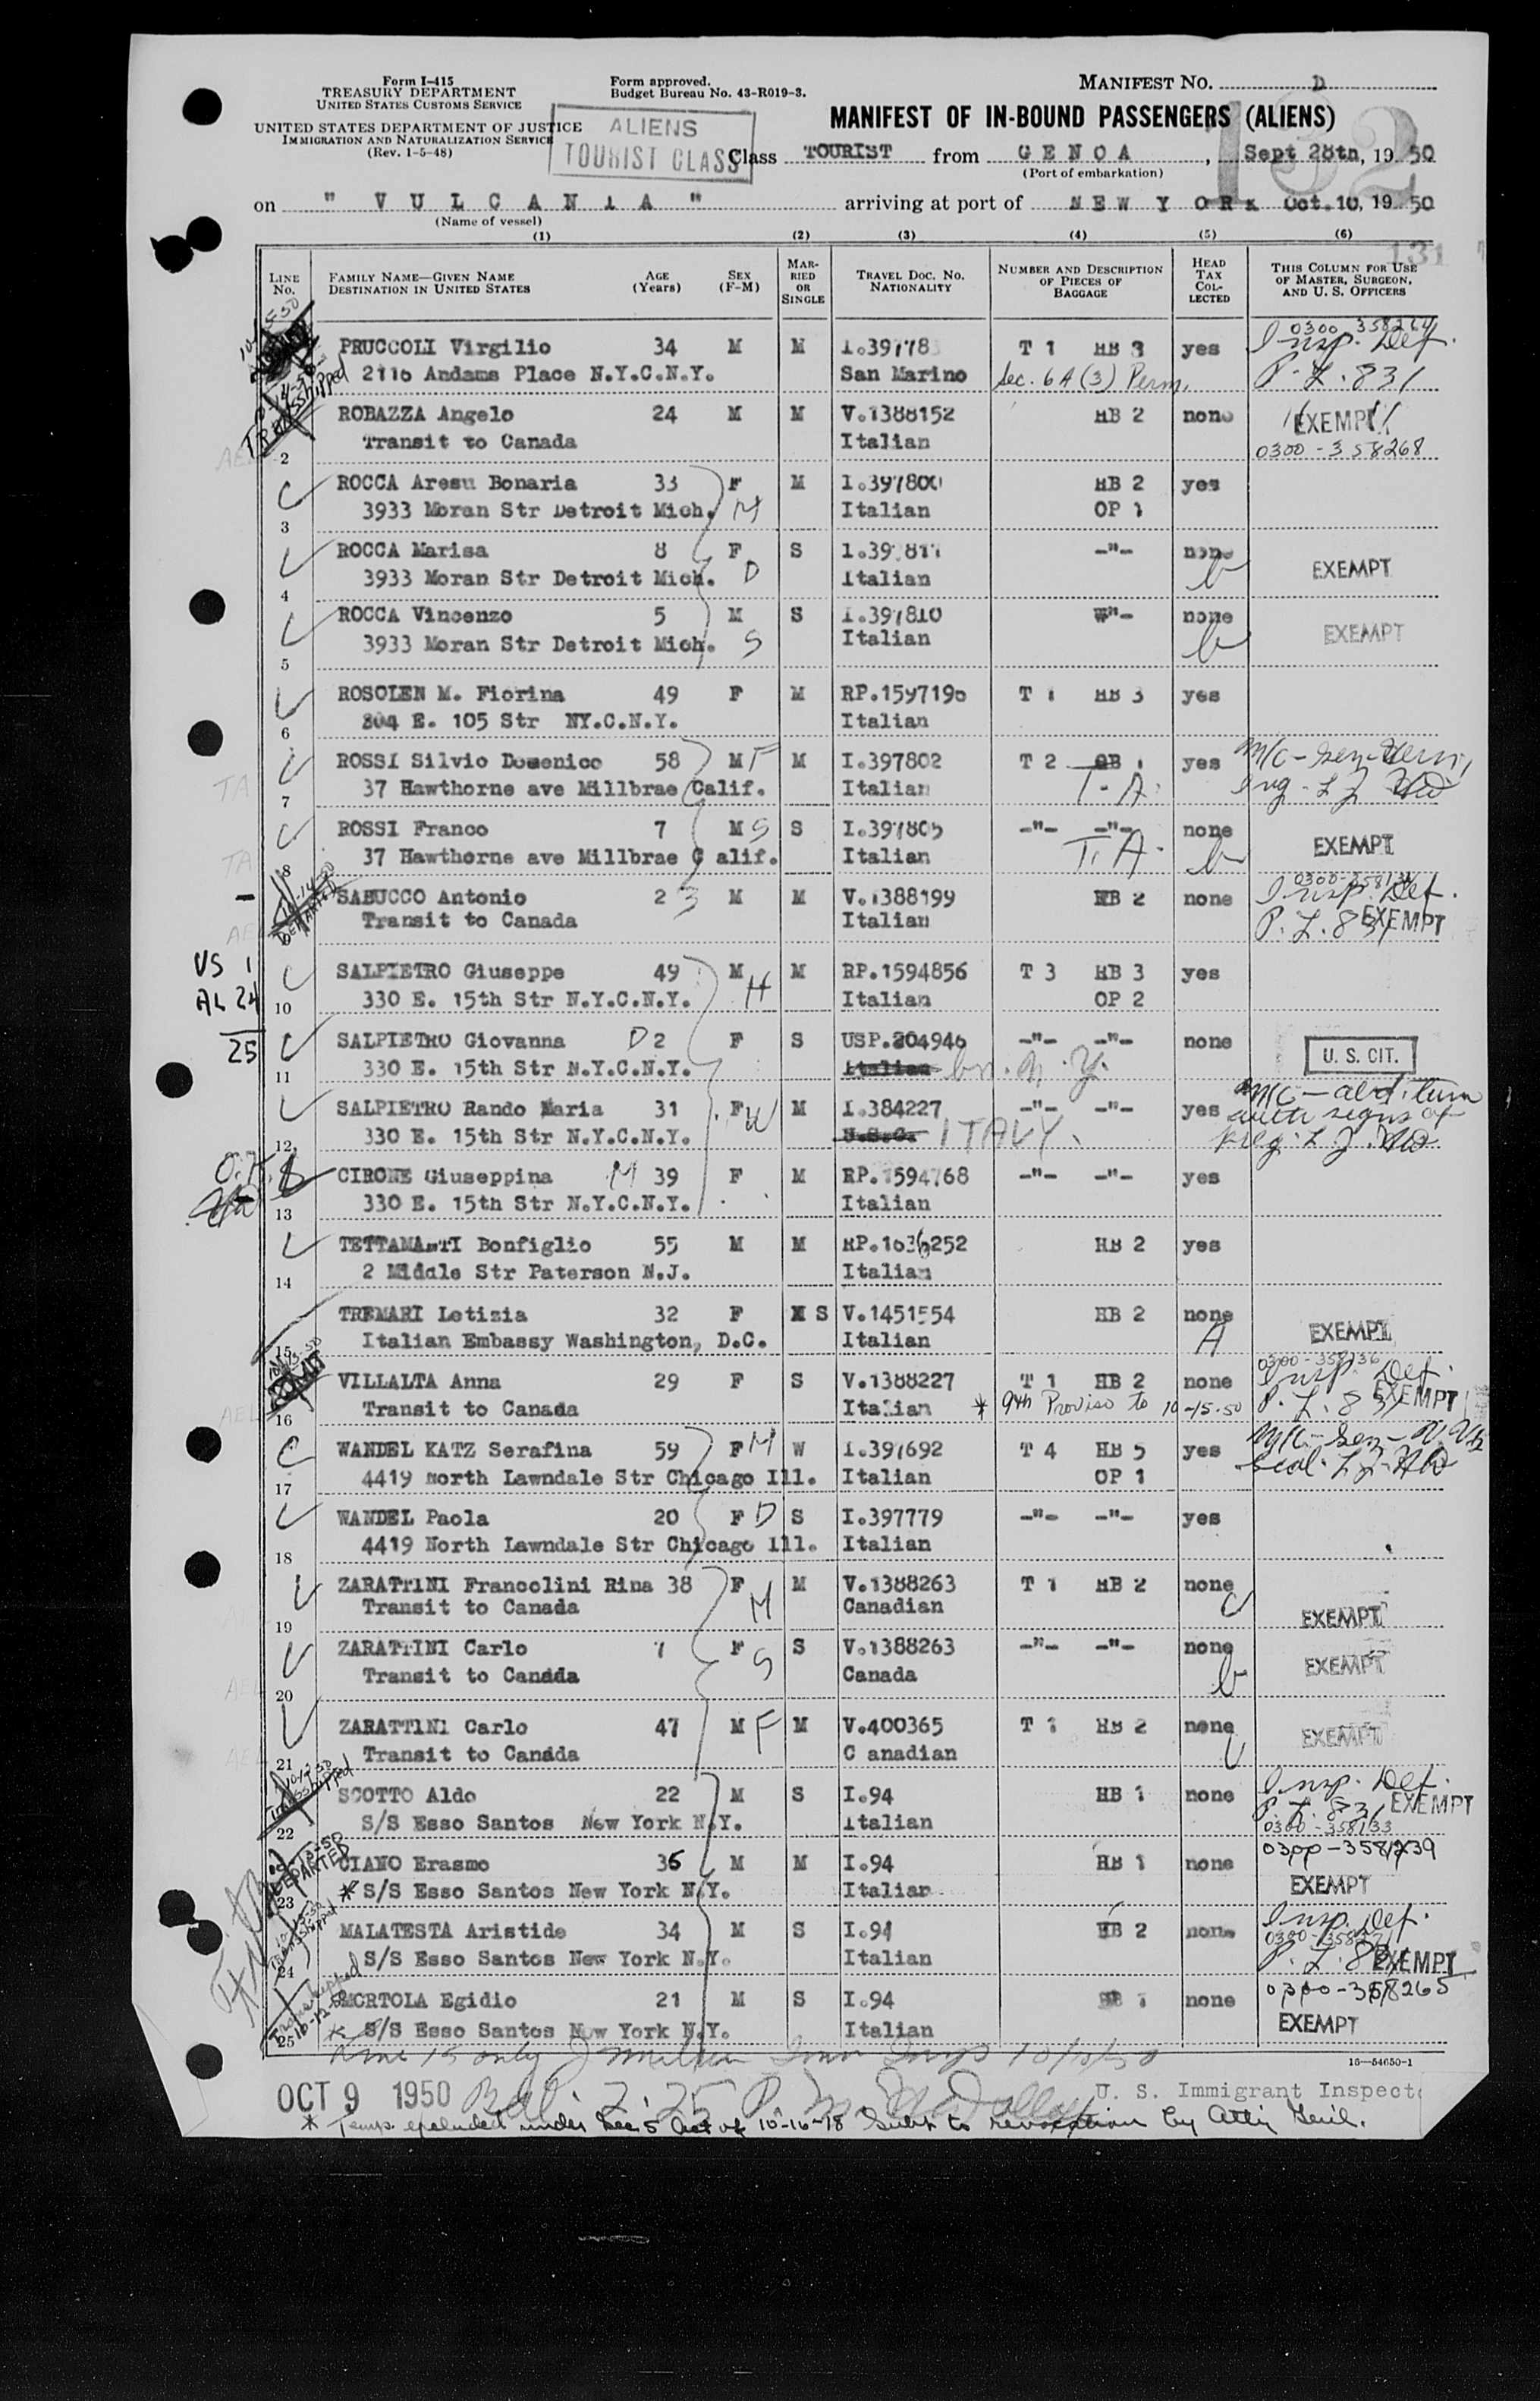 Form I-415
TREASURY DEPARTMENT
UNITED STATES CUSTOMS SERVICE
UNITED STATES DEPARTMENT OF JUSTICE
IMMIGRATION AND NATURALIZATION SERVICE
(Rev. 1-5-48)
Form approved.
Budget Bureau No. 43-R019-3.
ALIENS
TOURIST CLASS
MANIFEST NO. D
132
MANIFEST OF IN-BOUND PASSENGERS (ALIENS)
Class TOURIST from GENOA, Sept 28th, 19 50
(Port of embarkation)
on " VULCANIA " arriving at port of NEW YORK Oct.10, 19 50
(Name of vessel)
(1) (2) (3) (4) (5) (6)
131
LINE No. FAMILY NAME—GIVEN NAME DESTINATION IN UNITED STATES AGE (Years) SEX (F-M) MARRIED OR SINGLE TRAVEL DOC. NO. NATIONALITY NUMBER AND DESCRIPTION OF PIECES OF BAGGAGE HEAD TAX COLLECTED THIS COLUMN FOR USE OF MASTER, SURGEON, AND U. S. OFFICERS
PRUCCOLI Virgilio 34 M M I.39778 T 1 HB 3 yes Insp. Def.
2116 Andams Place N.Y.C.N.Y. San Marino Sec. 6A (3) Perm. P. L. 831
ROBAZZA Angelo 24 M M V.1388152 HB 2 none EXEMPT
2 Transit to Canada Italian 0300-358268
ROCCA Aresu Bonaria 33 F M I.397800 HB 2 yes
3 3933 Moran Str Detroit Mich. M Italian OP 1
ROCCA Marisa 8 F S -"- none
4 3933 Moran Str Detroit Mich. D Italian EXEMPT
ROCCA Vincenzo 5 M S I.397810 "- none
5 3933 Moran Str Detroit Mich. S Italian EXEMPT
ROSOLEN M. Fiorina 49 F M RP.159719 T 1 HB 3 yes
6 304 E. 105 Str NY.C.N.Y. Italian
ROSSI Silvio Domenico 58 M F M I.397802 T 2 yes
7 37 Hawthorne ave Millbrae Calif. Italian T-A
ROSSI Franco 7 M S S I.397805 -"- -"- none
8 37 Hawthorne ave Millbrae C alif. Italian T.A. EXEMPT
SABUCCO Antonio 23 M M V.1388199 HB 2 none Insp. Def.
9 Transit to Canada Italian P. L. 831 EXEMPT
VS 1
AL 24
25
SALPIETRO Giuseppe 49 M M RP.1594856 T 3 HB 3 yes
10 330 E. 15th Str N.Y.C.N.Y. H Italian OP 2
SALPIETRO Giovanna D 2 F S USP.204946 -"- -"- none
11 330 E. 15th Str N.Y.C.N.Y. Italian bn. N.Y. U. S. CIT.
SALPIETRO Rando Maria 31 F W M I.384227 -"- -"- yes
12 330 E. 15th Str N.Y.C.N.Y. U.S.C. ITALY
CIRONE Giuseppina M 39 F M RP.1594768 -"- -"- yes
13 330 E. 15th Str N.Y.C.N.Y. Italian
TETTAMANTI Bonfiglio 55 M M RP.1636252 HB 2 yes
14 2 Middle Str Paterson N.J. Italian
TREMARI Letizia 32 F M S V.1451554 HB 2 none
15 Italian Embassy Washington, D.C. Italian A EXEMPT
VILLALTA Anna 29 F S V.1388227 T 1 HB 2 none Insp. Def.
16 Transit to Canada Italian * 9th Proviso to 10-15-50 P. L. 831 EXEMPT
WANDEL KATZ Serafina 59 F M W I.397692 T 4 HB 5 yes
17 4419 North Lawndale Str Chicago Ill. Italian OP 1
WANDEL Paola 20 F D S I.397779 -"- -"- yes
18 4419 North Lawndale Str Chicago Ill. Italian
ZARATTINI Francolini Rina 38 F M V.1388263 T 1 HB 2 none
19 Transit to Canada M Canadian EXEMPT
ZARATTINI Carlo 7 F S V.1388263 -"- -"- none
20 Transit to Canada S Canada EXEMPT
ZARATTINI Carlo 47 M F M V.400365 T 1 HB 2 none
21 Transit to Canada C anadian EXEMPT
SCOTTO Aldo 22 M S I.94 HB 1 none Insp. Def.
22 S/S Esso Santos New York N.Y. Italian P. L. 831 EXEMPT
0300-358133
CIANO Erasmo 36 M M I.94 HB 1 none
23 * S/S Esso Santos New York N.Y. Italian EXEMPT
MALATESTA Aristide 34 M S I.94 HB 2 none Insp. Def.
24 S/S Esso Santos New York N.Y. Italian P. L. EXEMPT
MORTOLA Egidio 21 M S I.94 none
25 * S/S Esso Santos New York N.Y. Italian EXEMPT
16—54650-1
OCT 9 1950 U. S. Immigrant Inspect
* Temp. excluded under Sec 5 Act of 10-16-18 Subj. to revocation by Atty Genl.